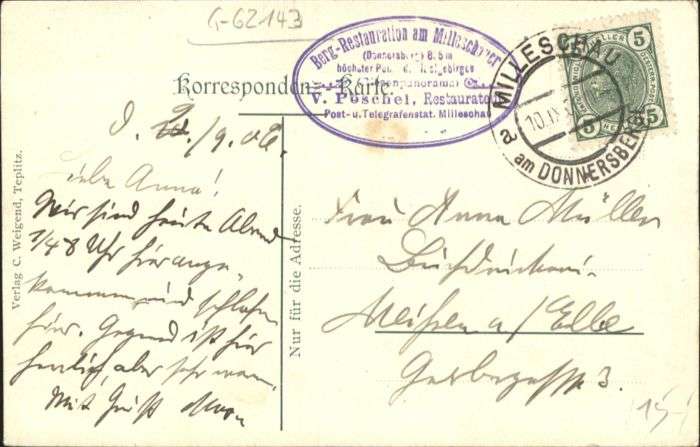 G-62143
Berg-Restauration am Milleschauer
(Donnersberg) 835 m
höchster Punkt d. Mittelgebirges
V. Pöschel, Restaurateur
Post- u. Telegrafenstat. Milleschau
Korrespondenz-Karte.
MILLESCHAU
am DONNERSBERG
a
10.IX
5
5
5
d. 9./9. 06.
Liebe Anna!
Wir sind heute Abend
1/48 Uhr hier ange-
kommen und schlafen
hier. Gegend ist hier
herrlich, aber sehr warm.
Mit Gruß
Frau Anna Müller
Buchdruckerei
Meißen a/Elbe
3.
Verlag C. Weigend, Teplitz.
Nur für die Adresse.
15,-